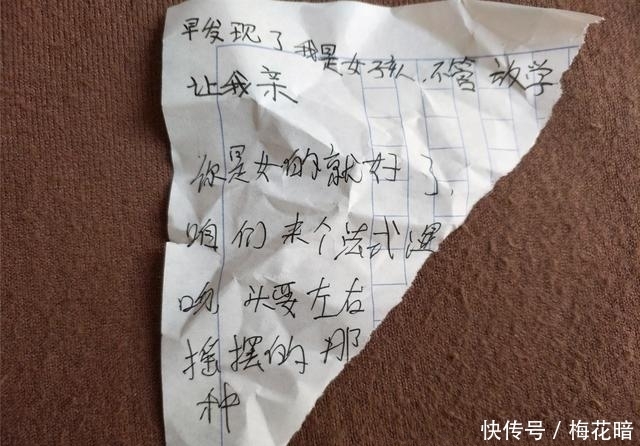 早发现了我是女孩，不管放学
让我亲
你是女的就好了，
咱们来个法式湿
吻 头要左右
摇摆的那
种
快传号／梅花暗